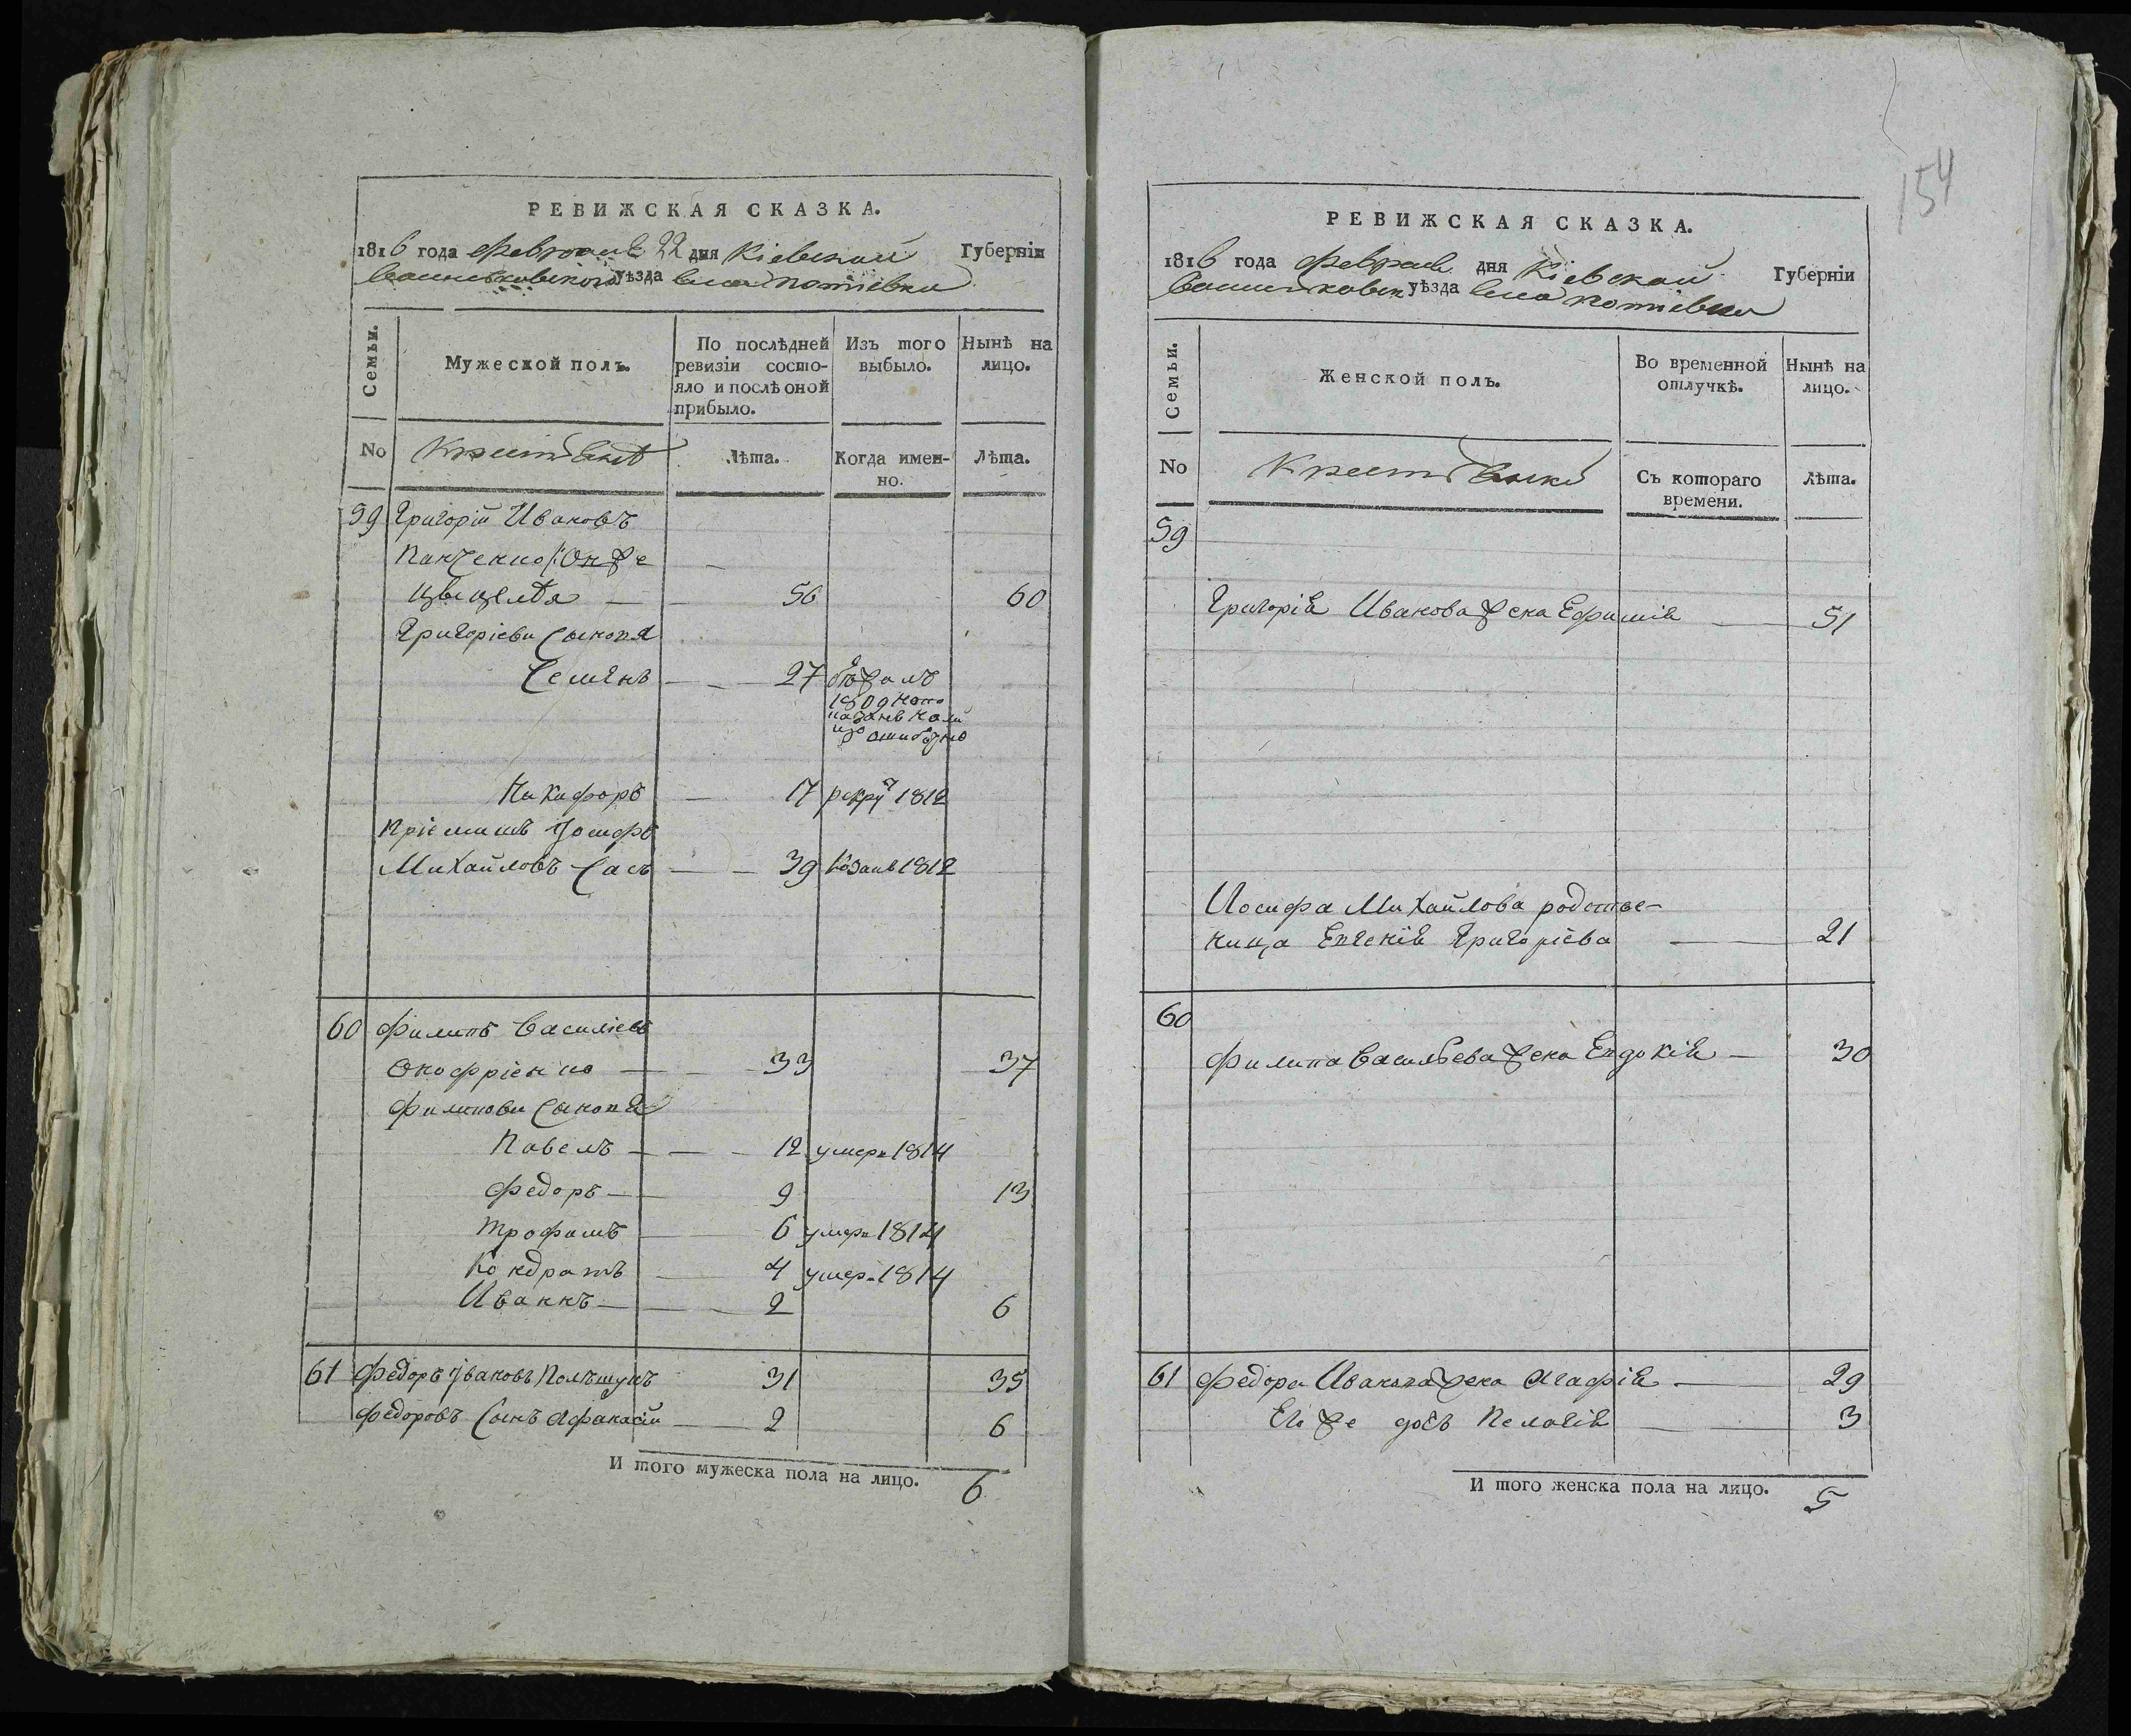 РЕВИЖСКАЯ СКАЗКА.
1816 года февраля 22 дня Кіевской Губерніи
Васильковского уѣзда села Потіевки
Семьи.
Мужеской полъ.
По послѣдней ревизіи состояло и послѣ оной прибыло.
Изъ того выбыло.
Нынѣ на лицо.
No
Крестьянѣ
Лѣта.
Когда именно.
Лѣта.
59 Григорій Ивановъ
Панченко /: Онже
56 60
Григоріеви Сыновя
Семенъ 27 бѣжалъ
1809
ошибочно
Никифоръ 17 рекру 1812
Пріемишъ Іосифъ
Михайловъ Сасъ 39 козакъ 1812
60 Филипъ Василіевъ
Онофріенко 33 37
Филипови Сыновя
Павелъ 12 умеръ 1814
Федоръ 9 13
Трофимъ 6 умеръ 1814
Кондратъ 4 умеръ 1814
Иваннъ 2 6
61 Федоръ Івановъ Полѣщукъ 31 35
Федоровъ Сынъ Афанасій 2 6
И того мужеска пола на лицо. 6
154
РЕВИЖСКАЯ СКАЗКА.
1816 года февраля дня Кіевской Губерніи
Васильковск уѣзда села Потіевки
Семьи.
Женской полъ.
Во временной отлучкѣ.
Нынѣ на лицо.
No
Крестьянки
Съ котораго времени.
Лѣта.
59
Григорія Иванова жена Ефимія 51
Иосифа Михайлова родстве-
ница Евгенія Григоріева 21
60
Филипа Васильева жена Евдокія 30
61 Федора Иванова жена Агафія 29
Его же дочь Пелагія 3
И того женска пола на лицо. 5